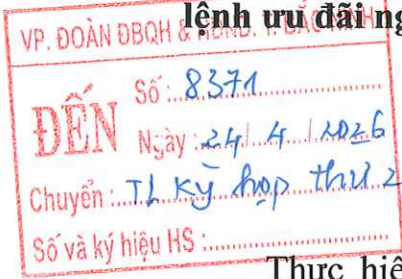 lệnh ưu đãi ng
VP. ĐOÀN ĐBQH & HĐND. T. BẮC NINH
ĐẾN
Số: 8371
Ngày: 24/ 4 / 2026
Chuyển: TL Kỳ họp thứ 2
Số và ký hiệu HS:
Thực hiệ